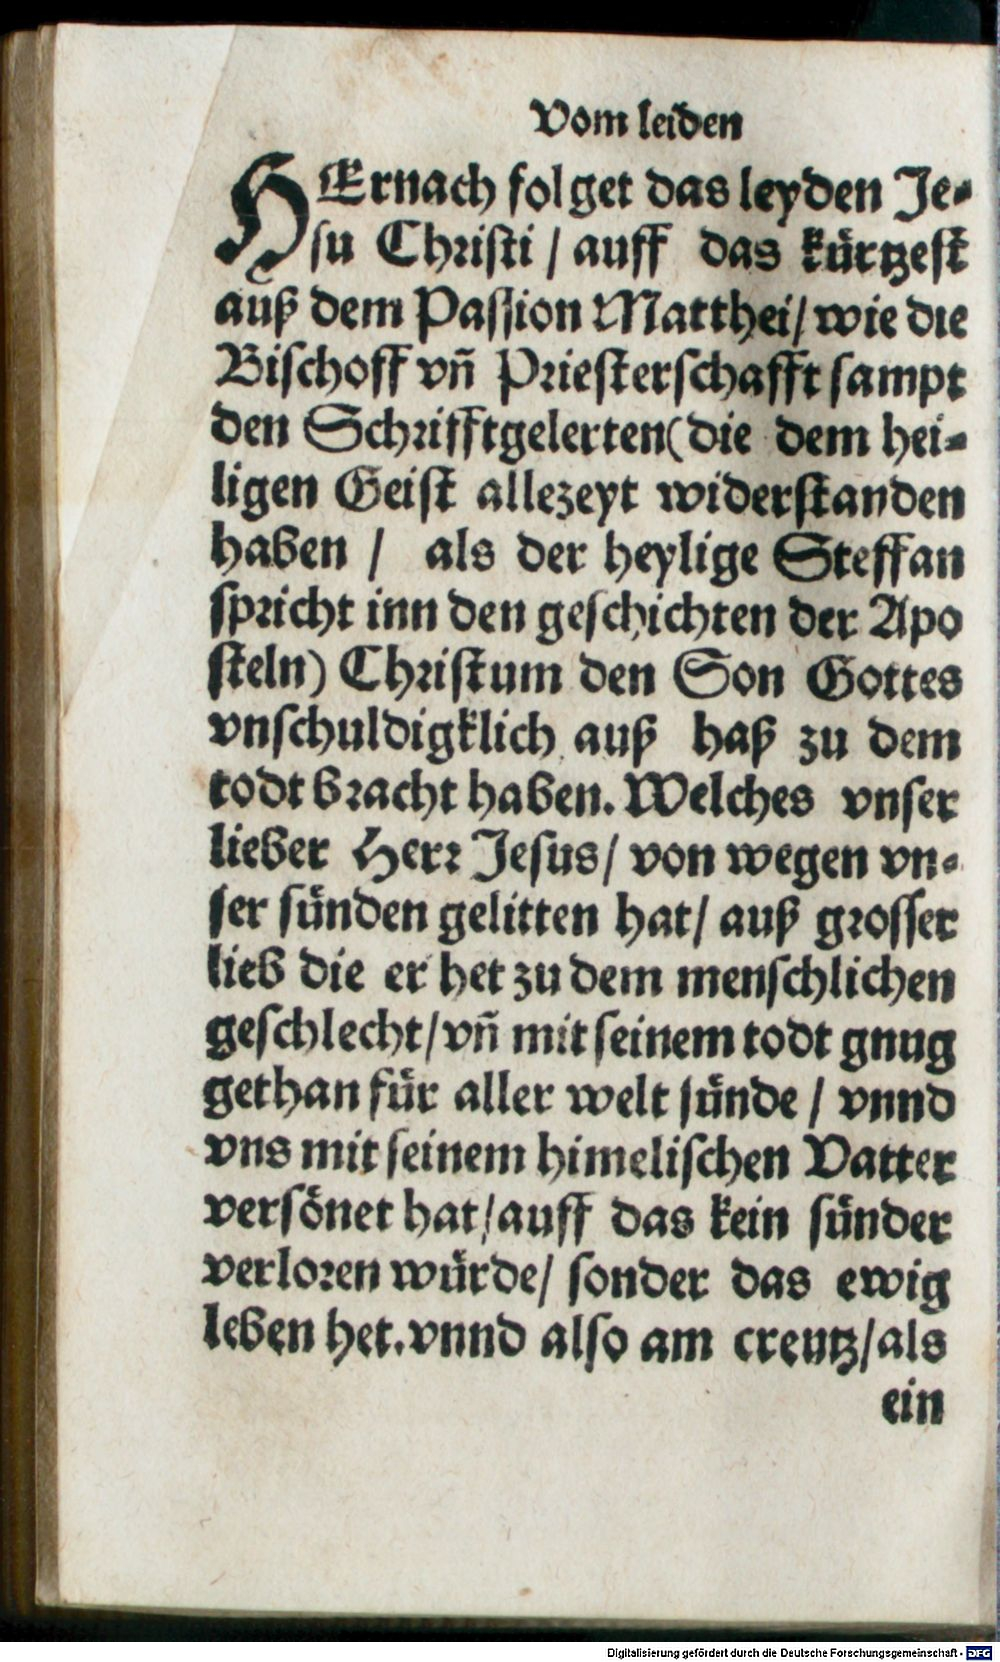 Vom leiden
HErnach folget das leyden Je-
su Christi / auff das kürtzest
auß dem Passion Matthei/ wie die
Bischoff vñ Priesterschafft sampt
den Schrifftgelerten(die dem hei-
ligen Geist allezeyt widerstanden
haben / als der heylige Steffan
spricht inn den geschichten der Apo
steln) Christum den Son Gottes
vnschuldigklich auß haß zu dem
todt bracht haben. Welches vnser
lieber Herr Jesus/ von wegen vn-
ser sünden gelitten hat/ auß grosser
lieb die er het zu dem menschlichen
geschlecht/vñ mit seinem todt gnug
gethan für aller welt sünde / vnnd
vns mit seinem himelischen Vatter
versönet hat/auff das kein sünder
verloren würde/ sonder das ewig
leben het.vnnd also am creutz/als
ein
Digitalisierung gefördert durch die Deutsche Forschungsgemeinschaft - DFG